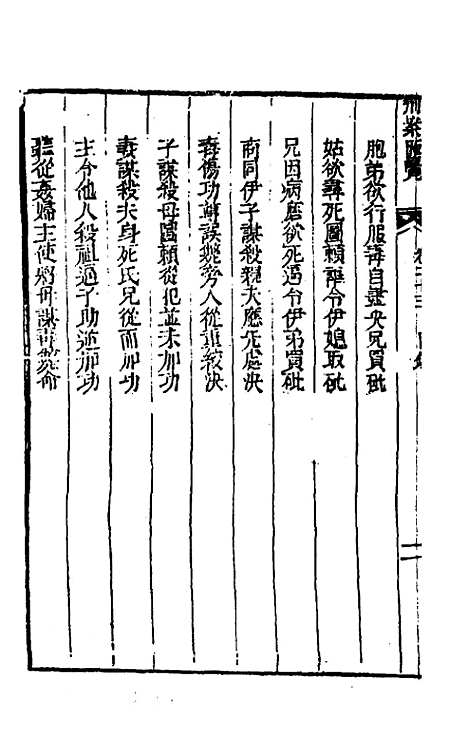 刑案匯覽 卷二十三 目錄 二
胞弟欲行服毒自盡央兄買砒
姑欲尋死圖賴逼令伊媳取砒
兄因病磨欲死逼令伊弟買砒
商同伊子謀殺親夫應先處決
毒傷功緦誤斃旁人從重絞決
子謀殺母圖賴從犯並未加功
妻謀殺夫身死氏兄從而加功
主令他人殺祖逼子助逆加功
聽從姦婦主使將母謀毒斃命